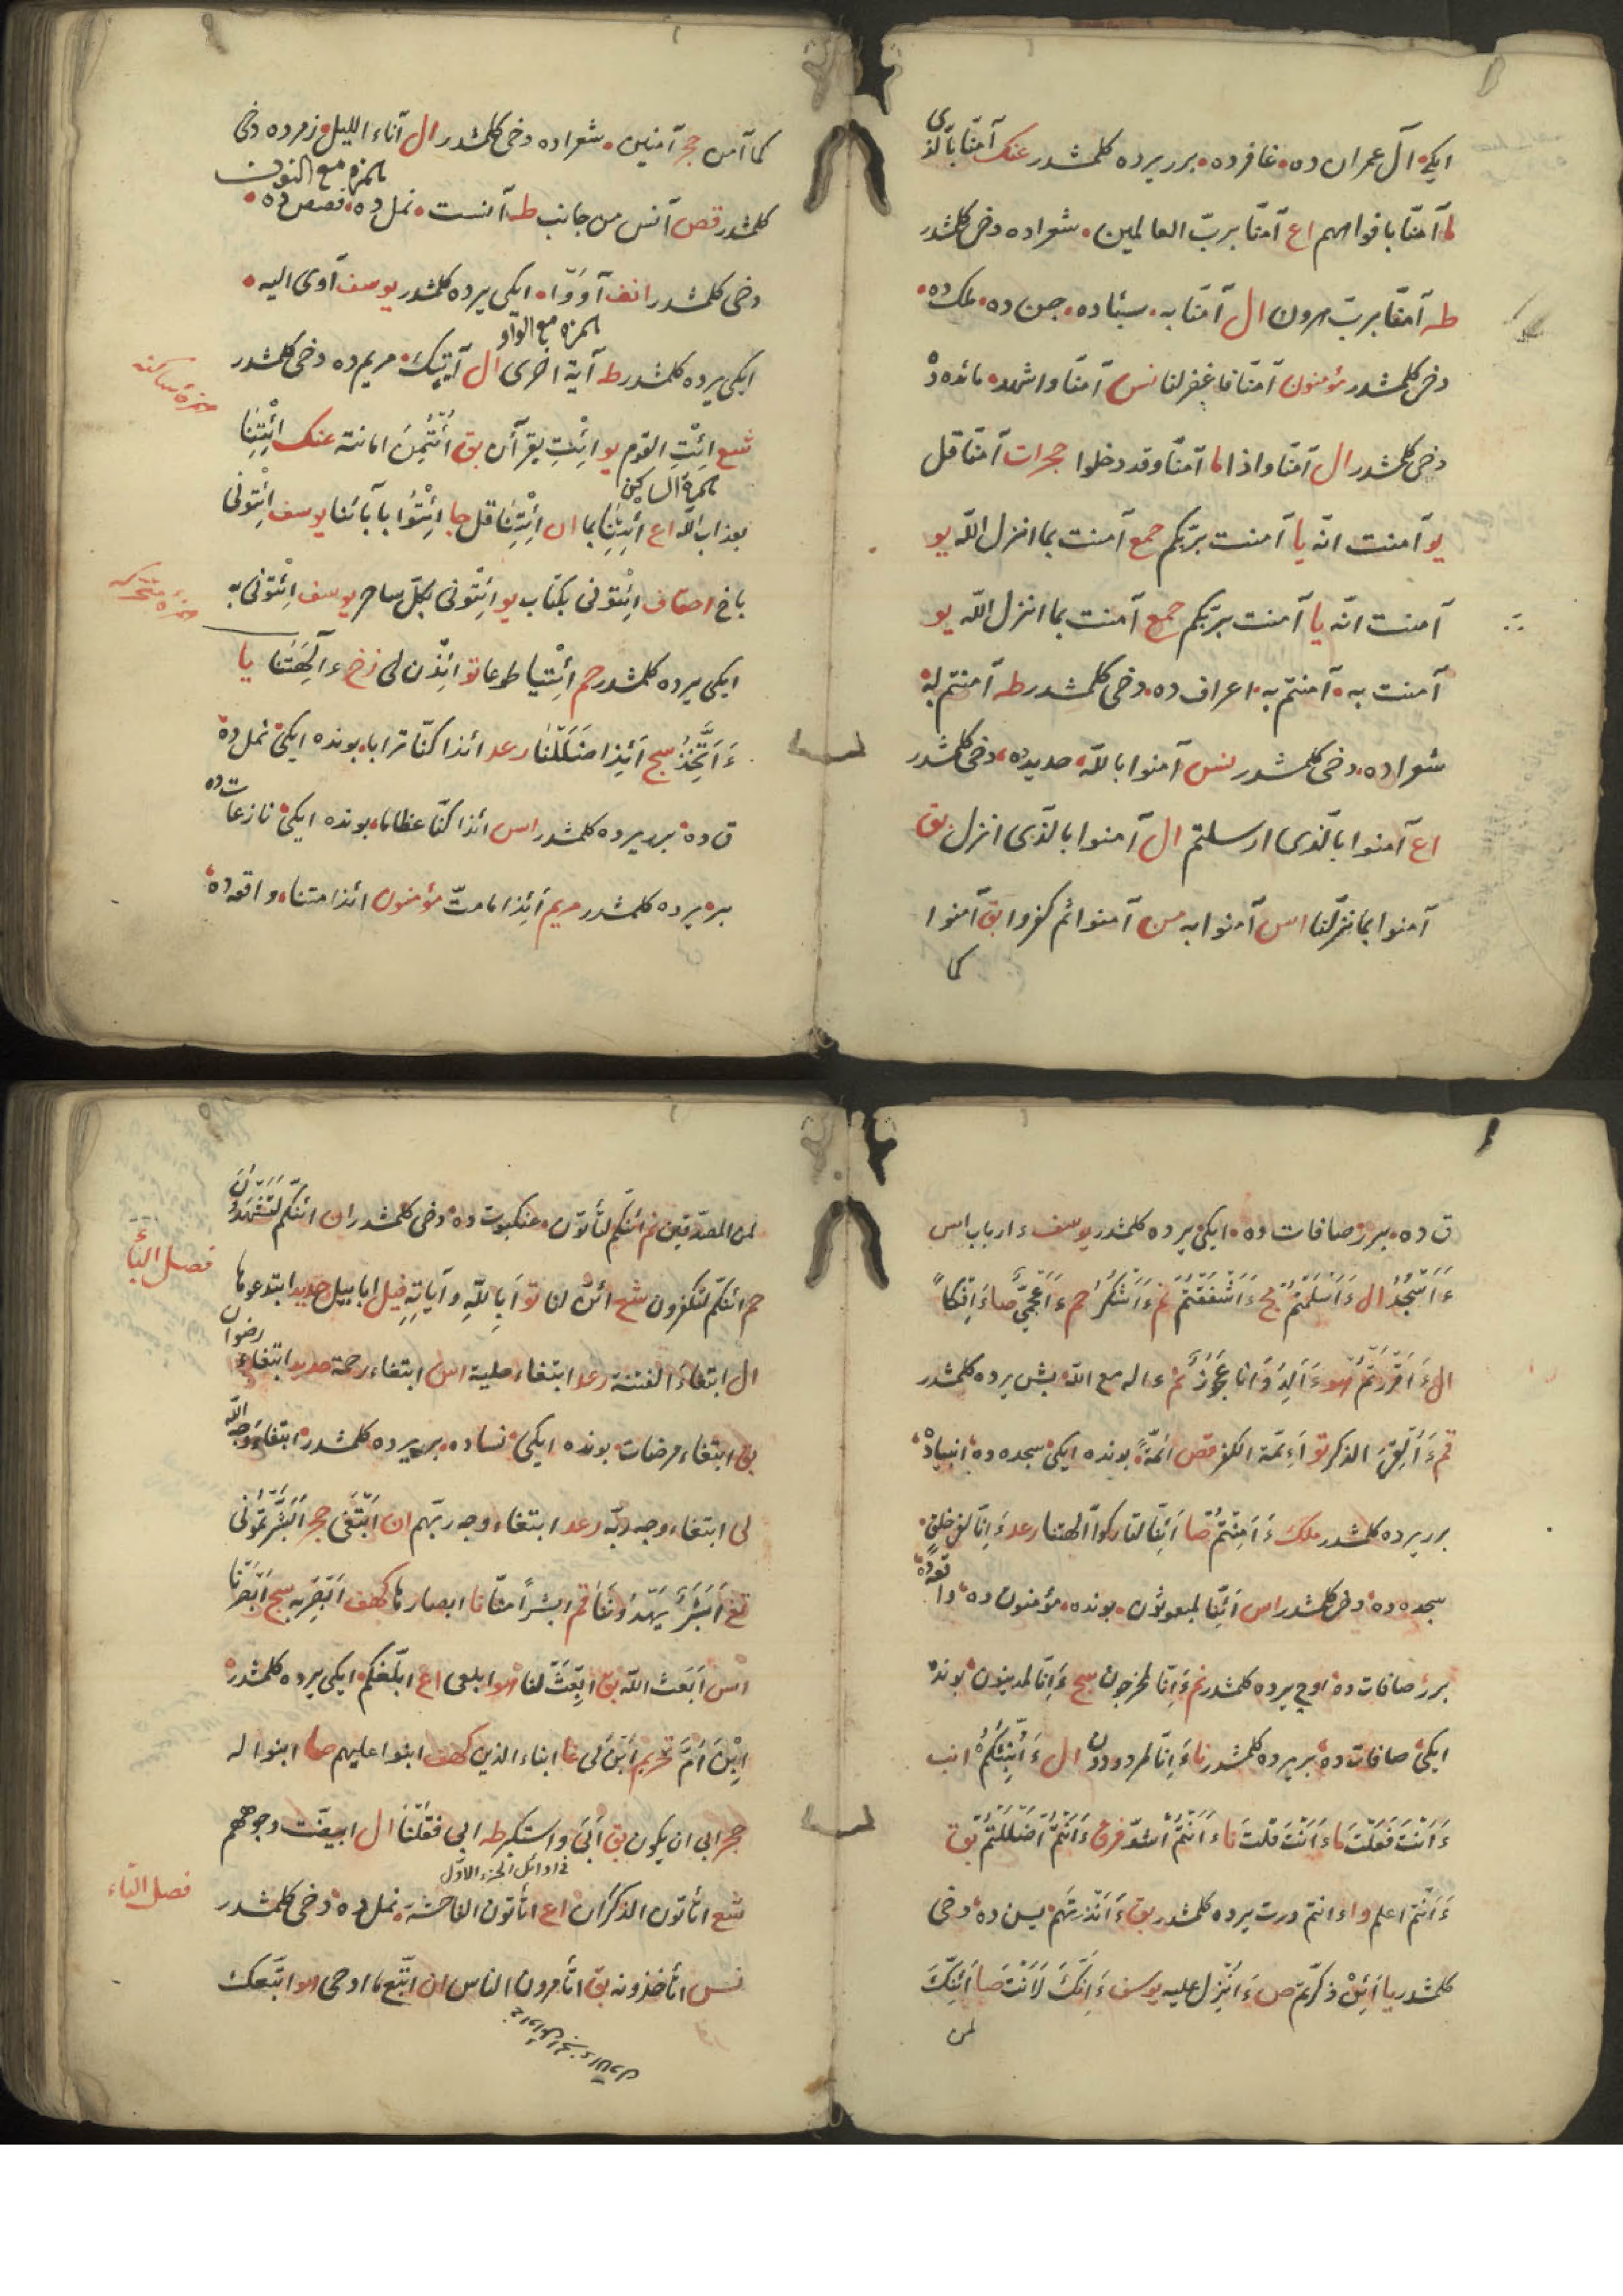 ایکی آل عمران ده غافرده برر یرده کلمشدر عنک آمنا بالذی
ما آمنا بافواههم اع آمنا برب العالمین شعراده دخی کلمشدر
طه آمنا برب هرون ال آمنا به سبئا ده جن ده ملک ده
دخی کلمشدر مؤمنون آمنا فاغفر لنا نس آمنا واشهد مائده ده
دخی کلمشدر ال آمنا واذا ما آمنا وقد دخلوا حجرات آمنا قل
یو آمنت انه یا آمنت بربکم جمع آمنت بما انزل الله یو
آمنت انه یا آمنت بربکم جمع آمنت بما انزل الله یو
آمنت به آمنتم به اعراف ده دخی کلمشدر طه آمنتم له
شعراده دخی کلمشدر نس آمنوا بالله حدیده دخی کلمشدر
اع آمنوا بالذی ارسلتم ال آمنوا بالذی انزل بق
آمنوا بما نزلنا اس آمنوا به من آمنوا ثم کفروا بق آمنوا
کما
کما آمن حجر آمنین شعراده دخی کلمشدر ال آناء اللیل زمرده دخی
الهمزه مع النون
کلمشدر قص آنس من جانب طه آنست نمل ده قصص ده
دخی کلمشدر انف آووا ایکی یرده کلمشدر یوسف آوی الیه
الهمزه مع الواو
ایکی یرده کلمشدر طه آیة اخری ال آیتک مریم ده دخی کلمشدر
همزهٔ ساکنه
شع ائْتِ القوم یو ائْتِ بقرآن بق اُئْتُمِنَ امانته عنک ائْتِنَا
الهمزة الساکن
بعذاب الله اع ائتنا بما ان ائتنا قل جا ائتوا بآبائنا یوسف ائتونی
باخ احقاف ائتونی بکتاب یو ائتونی بکل ساحر یوسف ائتونی به
همزهٔ متحرکه
ایکی یرده کلمشدر حم ائتیا طوعا تو ائذن لی زخ ءآلهتنا یا
ءَاَتَّخِذُ سج اَئِذا ضَلَلْنا رعد ائذا کنا ترابا بونده ایکی نمل ده
ق ده برر یرده کلمشدر اس ائذا کنا عظاما بونده ایکی نازعات ده
بر یرده کلمشدر مریم أئذا ما مت مؤمنون ائذا متنا واقعه ده
ق ده برر صافات ده ایکی یرده کلمشدر یوسف ءارباب اس
ءَاَسْجُدُ ال ءَاَسْلَمْتُم مج ءَاَشْفَقْتُم نم ءَاَشْکُرُ حم ءَاَعْجَمِیٌّ صا ءَاِفْکاً
ال ءَاَقْرَرْتُم هو ءَاَلِدُ وَاَنا عَجُوزٌ نم ءاله مع الله بش یرده کلمشدر
قم ءَاُلْقِیَ الذکر تو اَئِمَّة الکفر قص ائمةً بونده ایکی سجده ده انبیاده
برر یرده کلمشدر ملک ءَاَمِنْتُم صا اَئِنَّا لتارکوا آلهتنا رعد ءَاِنَّا لفی خلق
سجده ده دخی کلمشدر اس اَئِنَّا لمبعوثون بونده مؤمنون ده واقعه ده
برر صافات ده اوچ یرده کلمشدر نم ءَاِنَّا لمخرجون سج ءَاِنَّا لمدینون بونده
ایکی صافات ده بر یرده کلمشدر نا ءَاِنَّا لمردودون ال ءَاُنَبِّئُکُم انب
ءَاَنْتَ فَعَلْتَ ما ءَاَنْتَ قلت نا ءَاَنْتُم اشد فرق ءَاَنْتُم اَضْلَلْتُم بق
ءَاَنْتُم اعلم وا ءانتم درت یرده کلمشدر بق ءَاَنْذَرْتَهُم یس ده دخی
کلمشدر یا اَئِنْ ذکرتم ص ءَاُنْزِلَ علیه یوسف ءَاِنَّکَ لَاَنْتَ صا اَئِنَّکَ
لمن
لمن المصدقین نم ائنکم لتأتون عنکبوت ده دخی کلمشدر ان ائنکم لَتَشْهَدُونَ
فصل الباء
حم ائنکم لتکفرون شع ائن لنا تو اَبِاللّٰهِ وآیاته فیل ابابیل حدید ابتدعوها
ال ابتغاءَ الفتنة رعد ابتغاء حلیة اس ابتغاء رحمة حدید ابتغاء رضوان
بق ابتغاء مرضات بونده ایکی نساده بر یرده کلمشدر ابتغاء وجه الله
لی ابتغاء وجه ربه رعد ابتغاء وجه ربهم ان اَبْتَغی حجر اَبَشَّرْتُمُونی
تغ اَبَشَرٌ یَهْدُونَنَا قم ابشراً منا نا ابصارها کهف اَبْصِرْ به سج اَبْصَرْنا
اس اَبَعَثَ الله بق اِبْعَثْ لنا هو ابلعی اع ابلغکم ایکی یرده کلمشدر
اِبْنَ اُمَّ تحریم اِبْنِ لی غا ابناء الذین کهف ابنوا علیهم صا ابنوا له
حجر ابی ان یکون بق اَبَی واستکبر طه ابی فقلنا ال ابیضت وجوههم
فی اوائل الجزء الاول
فصل التاء
شع اتأتون الذکران اع اتأتون الفاحشة نمل ده دخی کلمشدر
نس اتأخذونه بق اتأمرون الناس ان اتبع ما اوحی هو اتبعک